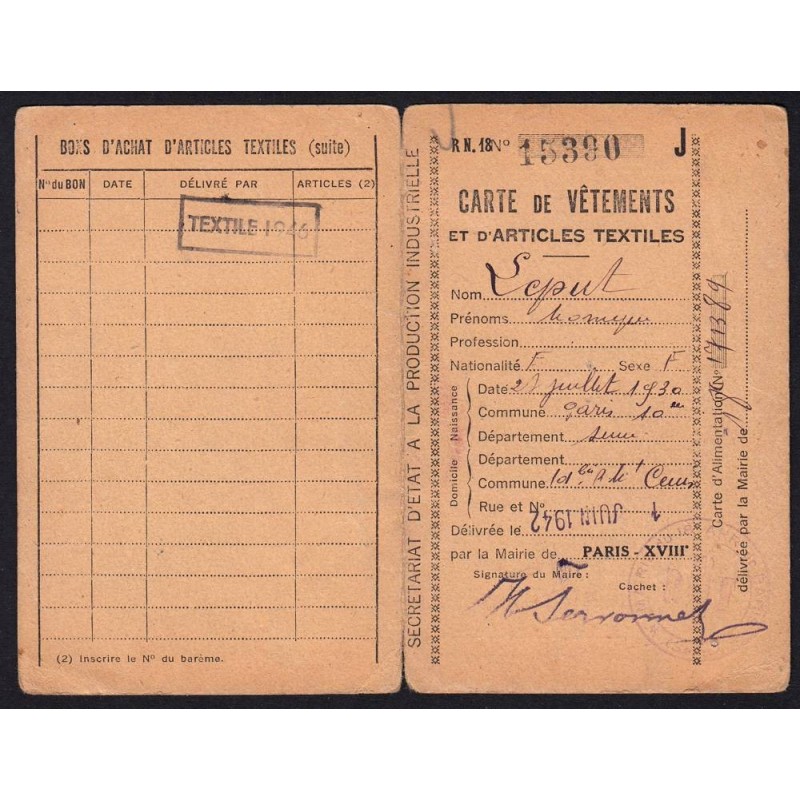 BONS D'ACHAT D'ARTICLES TEXTILES (suite)
Nos du BON DATE DÉLIVRÉ PAR ARTICLES (2)
TEXTILE 1946
(2) Inscrire le No du barème.
SECRÉTARIAT D'ÉTAT A LA PRODUCTION INDUSTRIELLE
R N. 18 No 15390 J
CARTE DE VÊTEMENTS
ET D'ARTICLES TEXTILES
Nom Leput
Prénoms
Profession
Nationalité F Sexe F
Naissance
Date juillet 1930
Commune Paris 10me
Département Seine
Domicile
Département
Commune
Rue et No
Délivrée le 1 JUIN 1942
par la Mairie de PARIS - XVIIIe
Signature du Maire :
Cachet :
Carte d'Alimentation No
délivrée par la Mairie de